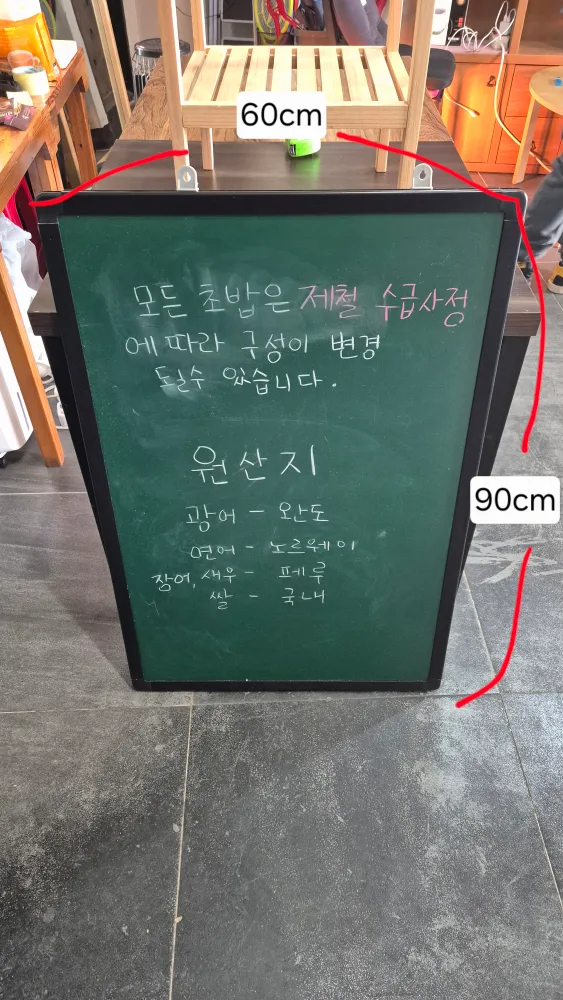 60cm
모든 초밥은 제철 수급사정
에 따라 구성이 변경
될수 있습니다.
원산지
광어 - 완도
90cm
연어 - 노르웨이
장어, 새우 - 페루
쌀 - 국내